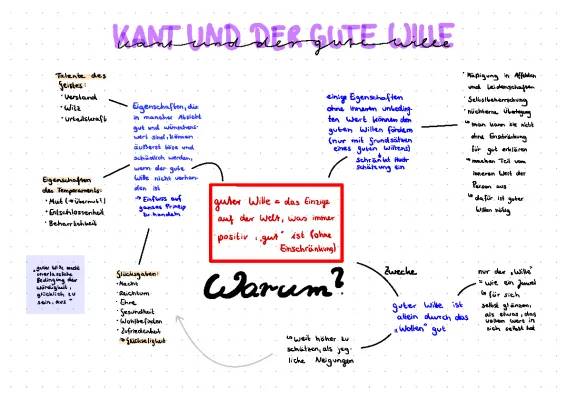 KANT UND DER GUTE WILLE
kant und der gute wille
Talente des
Geistes:
· Verstand
· Witz
· Urteilskraft
Eigenschaften, die
in mancher Absicht
gut und wünschens-
wert sind, können
äußerst böse und
schädlich werden,
wenn der gute
Wille nicht vorhan-
den ist
→ Einfluss auf
ganzes Prinzip
zu handeln
Eigenschaften
des Temperaments:
· Mut (→ Übermut!)
· Entschlossenheit
· Beharrlichkeit
"guter Wille macht
unerlässliche
Bedingung der
Würdigkeit,
glücklich zu
sein, aus"
Glücksgaben:
· Macht
· Reichtum
· Ehre
· Gesundheit
· Wohlbefinden
· Zufriedenheit
→ Glückseligkeit
guter Wille = das Einzige
auf der Welt, was immer
positiv, "gut" ist (ohne
Einschränkung)
Warum?
einige Eigenschaften
ohne inneren unbeding-
ten Wert können den
guten Willen fördern
(nur mit Grundsätzen
eines guten Willens)
↳ schränkt Hoch-
schätzung ein
· Mäßigung in Affekten
und Leidenschaften
· Selbstbeherrschung
· nüchterne Überlegung
↳ man kann sie nicht
ohne Einschränkung
für gut erklären
↳ machen Teil vom
inneren Wert der
Person aus
↳ dafür ist guter
Wille nötig
Zwecke
guter Wille ist
allein durch das
"Wollen" gut
nur der "Wille"
= wie ein Juwel
↳ für sich
selbst glänzen,
als etwas, das
vollen Wert in
sich selbst hat
↳ weit höher zu
schätzen, als jeg-
liche Neigungen